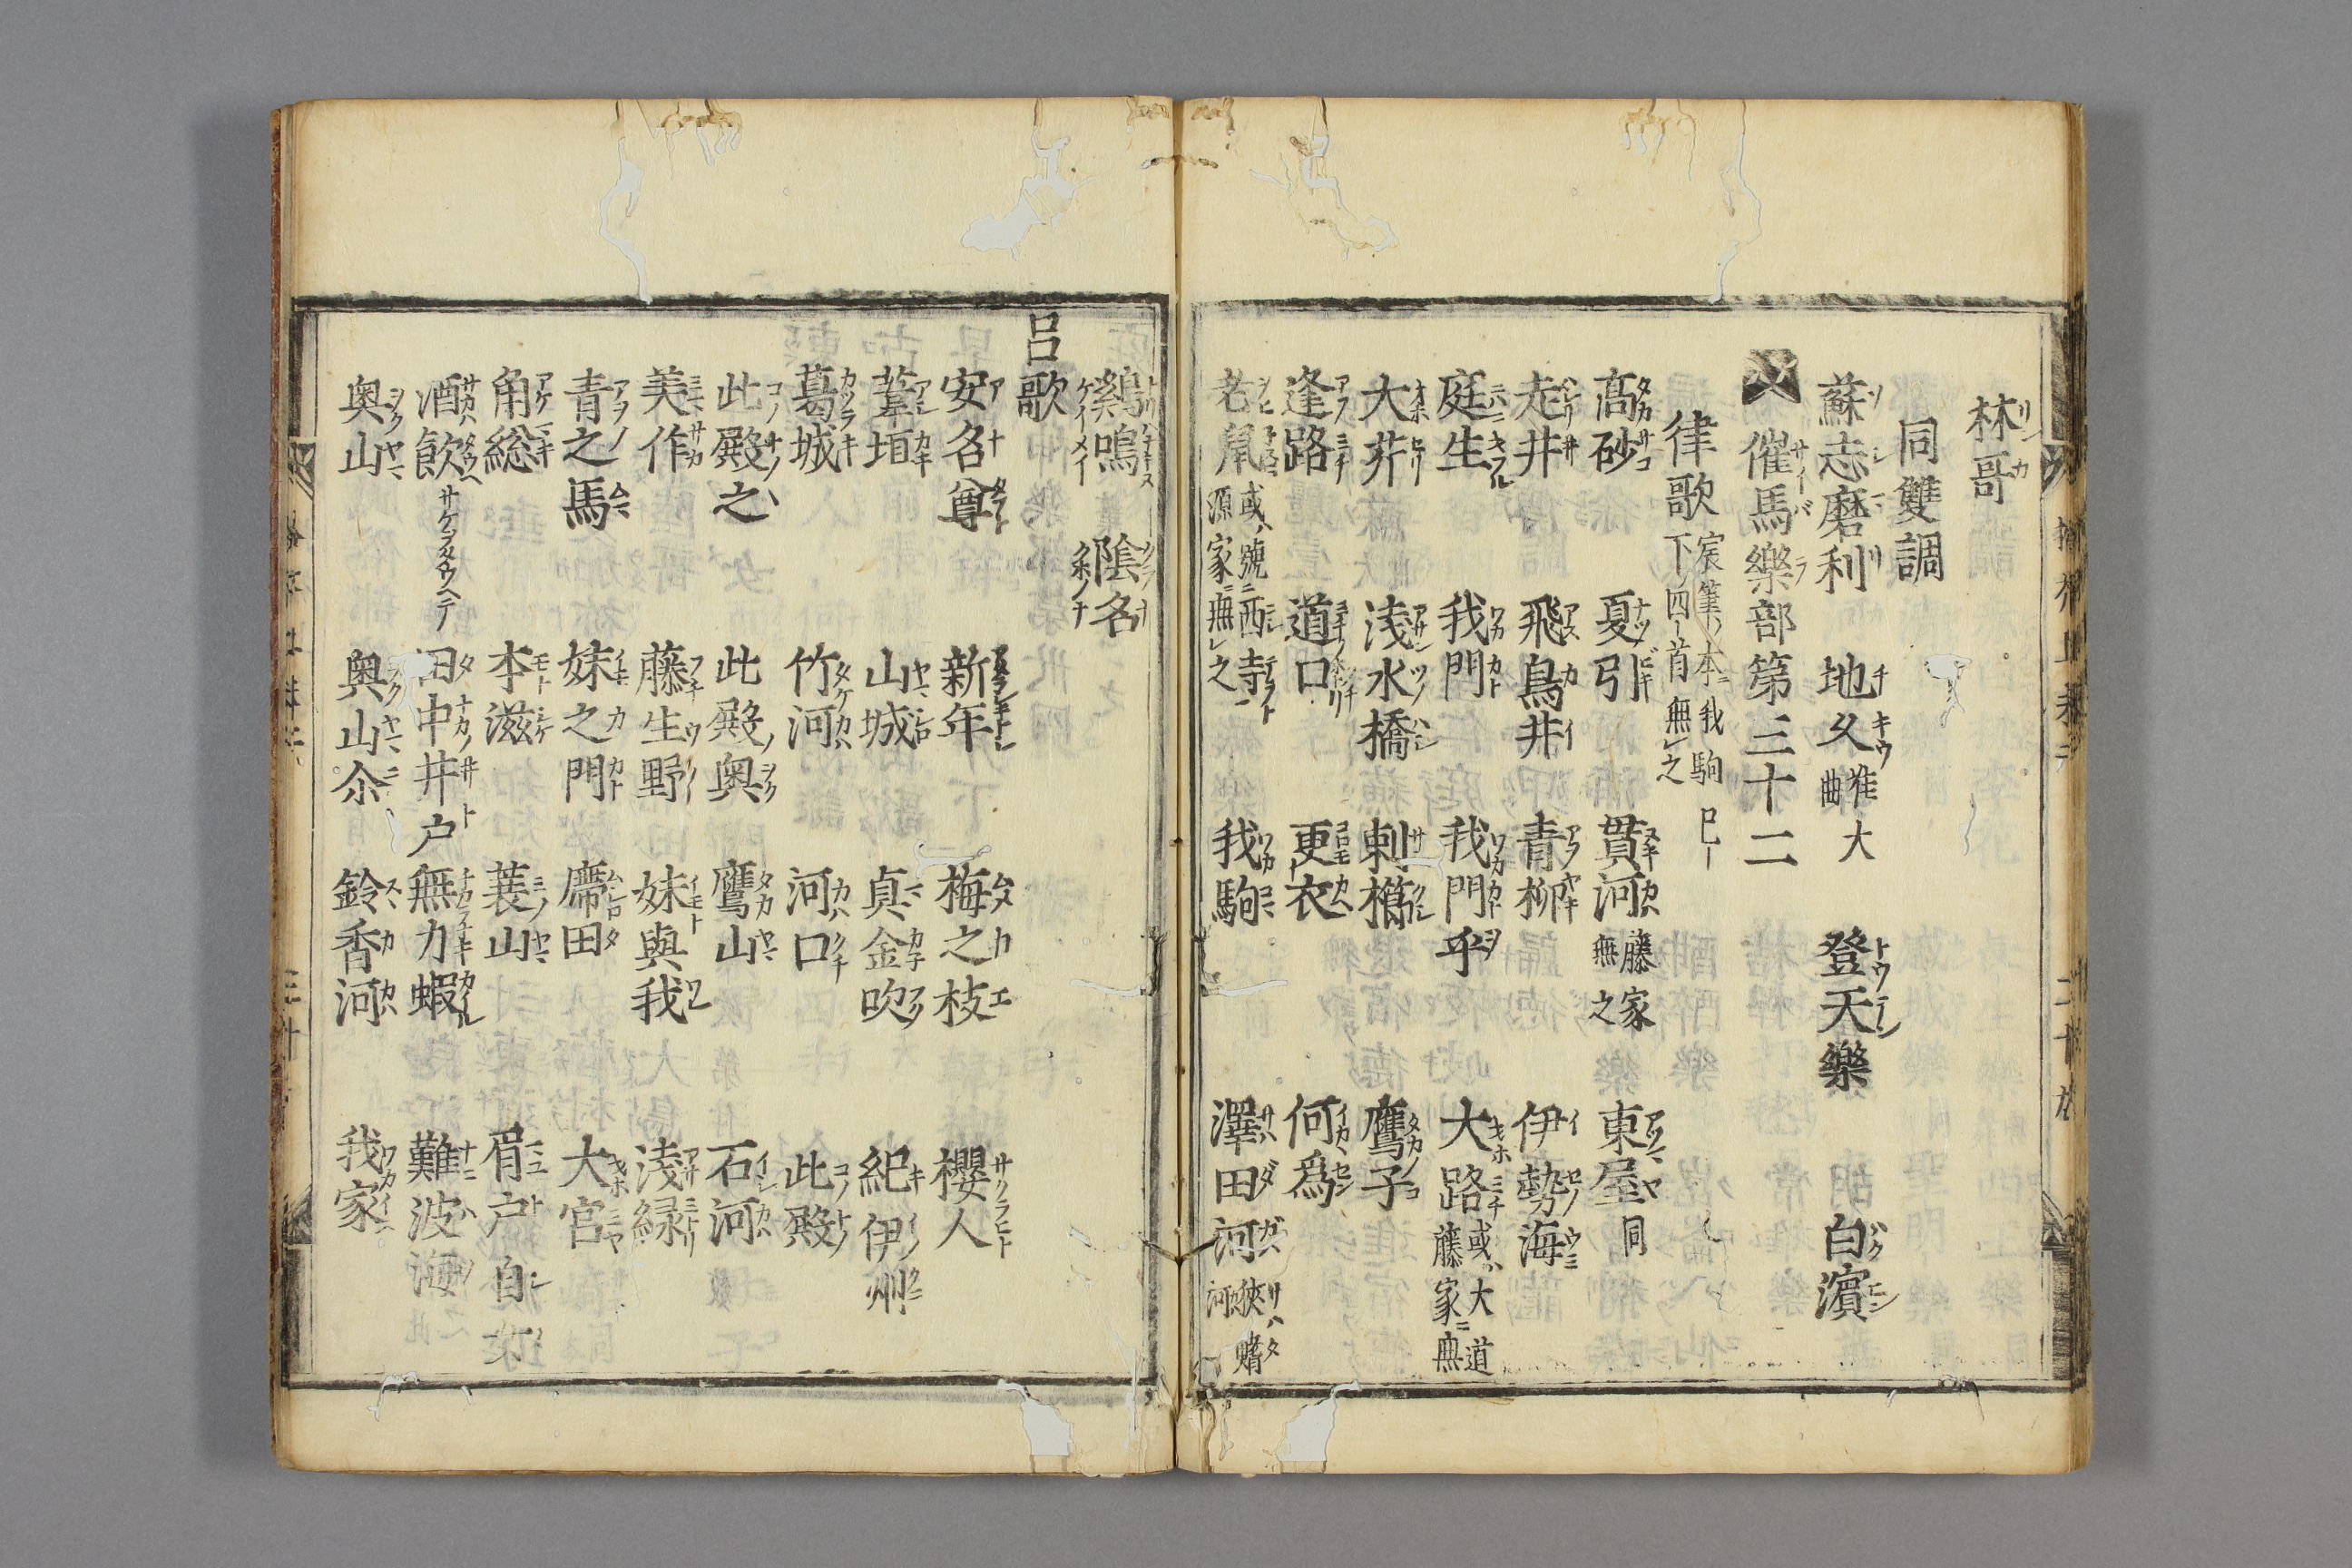 林哥
同雙調
蘇志磨利 地久 准大曲 登天樂 白濱
催馬樂部第三十二
律歌 宸筆ノ本ニ我駒已下ノ四首無之
髙砂 夏引 貫河 藤家無之 東屋 同
走井 飛鳥井 青柳 伊勢海
庭生 我門 我門乎 大路 或ハ大道藤家ニ無
大芹 淺水橋 刺櫛 鷹子
逢路 道口 更衣 何爲
老鼠 或ハ號ニ西寺ト源家ニ無之 我駒 澤田河
鷄鳴 陰名
呂歌
安名尊 新年 梅之枝 櫻人
葦垣 山城 真金吹 紀伊州
葛城 竹河 河口 此殿
此殿之 此殿奥 鷹山 石河
美作 藤生野 妹與我 淺緑
青之馬 妹之門 席田 大宮
角総 本滋 蓑山 眉戸自
酒飲 サケヲタウヘテ 田中井户 無力蝦 難波海
奥山 奥山尒 鈴香河 我家